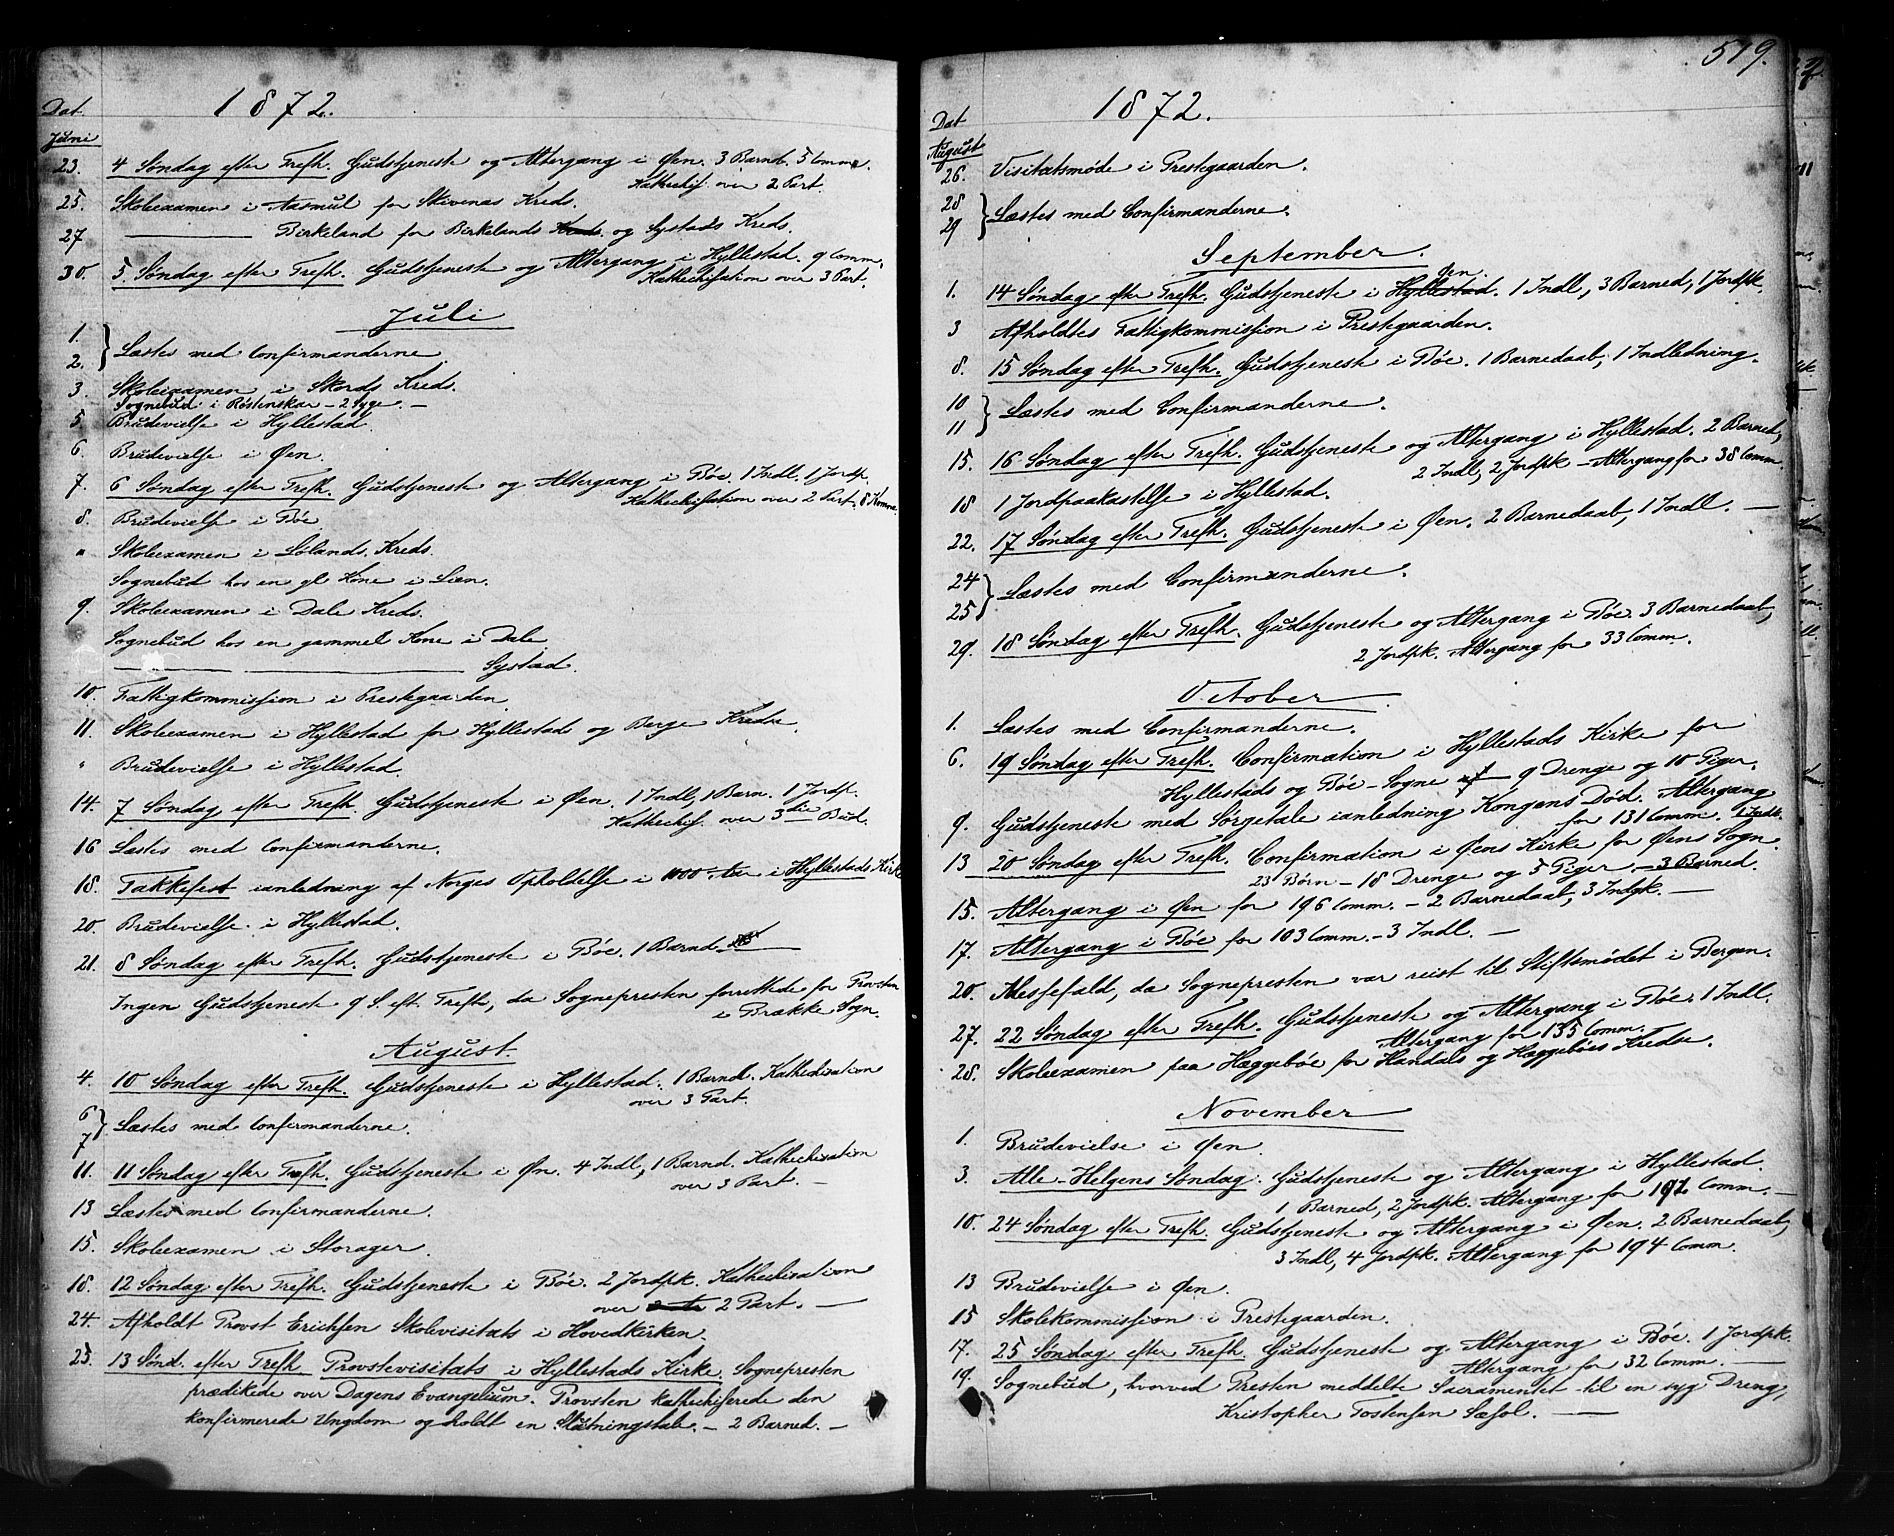 1872.
Dat.
Juni
23. 4 Søndag efter Trefh. Gudstjeneste og Altergang i Øen. 3 Barnd. 5 Comm.
Kathechis. over 2 Part.
25. Skoleexamen i Aasmul for Skivenas Kreds.
27 ——— Birkeland for Birkelands Kreds. og Systads Kreds.
30. 5. Søndag efter Trefh. Gudstjeneste og Altergang i Hyllestad. 9 Comm.
Kathechisation over 3 Part.
Juli
1.
2. } Læstes med Confirmanderne.
3. Skoleexamen i Skords Kreds.
Sognebud i Röstenskar – 2 syge. –
5. Brudevielse i Hyllestad.
6. Brudevielse i Øen.
7. 6 Søndag efter Trefh. Gudstjeneste og Altergang i Bøe. 1 Indl. 1 Jordp.
Kathechisation over 2 Part. 8 Komm.
8. Brudevielse i Bøe
" Skoleexamen i Sølands Kreds.
Sognebud hos en gl Kone i Lien.
9. Skoleexamen i Dale Kreds.
Sognebud hos en gammel Kone i Dale
——— Systad.
10. Fattigkommission i Prestegaarden.
11. Skoleexamen i Hyllestad for Hyllestad og Berge Kredse.
" Brudevielse i Hyllestad.
14. 7 Søndag efter Trefh. Gudstjeneste i Øen. 1 Indl, 1 Barn. 1 Jordp.
Kathechis. over 3die Bud.
16 Læstes med Confirmanderne.
18. Takkefest ianledning af Norges Opholdelse i 1000 Aar i Hyllestads Kirke
20. Brudevielse i Hyllestad.
21. 8 Søndag efter Trefh. Gudstjeneste i Bøe. 1 Barnd.
Ingen Gudstjenest 9 S. eft. Trefh, da Sognepresten forrettede for Provsten
i Brække Sogn.
August.
4. 10 Søndag efter Trefh. Gudstjeneste i Hyllestad. 1 Barnd. Kathechisation
over 3 Part.
6
7 } Læstes med Confirmanderne.
11. 11 Søndag efter Trefh. Gudstjeneste i Øen. 4 Indl, 1 Barnd. Kathechisation
over 3 Part. –
13 Læstes med Confirmanderne.
15. Skoleexamen i Storager.
18. 12 Søndag efter Trefh. Gudstjeneste i Bøe. 2 Jordpk. Kathechisation
over 2 Part. —
24. Afholdt Provst Erichsen Skolevisitats i Hovedkirken.
25. 13 Sønd. efter Trefh Provstevisitats i Hyllestads Kirke. Sognepresten
prædikede over Dagens Evangelium. Provsten kathechiserede den
konfirmerede Ungdom og holdt en Slutningstale. – 2 Barned. –
519.
1872.
Dat
August
26. Visitatsmøde i Prestegaarden.
28
29 } Læstes med Confirmanderne.
September.
Øen.
1. 14 Søndag efter Trefh. Gudstjeneste i Hyllestad. 1 Indl, 3 Barned, 1 Jordpk.
3 Afholdtes Fattigkommission i Prestegaarden.
8. 15 Søndag efter Trefh. Gudstjenest i Bøe. 1 Barnedaab, 1 Indledning.
10
11 } Læstes med Confirmanderne.
15. 16 Søndag efter Trefh. Gudstjeneste og Altergang i Hyllestad. 2 Barned,
2 Indl, 2 Jordpk – Altergang for 38 Comm.
18 1 Jordpaakastelse i Hyllestad.
22. 17 Søndag efter Trefh. Gudstjeneste i Øen. 2 Barnedaab, 1 Indl. —
24
25 } Læstes med Confirmanderne.
29. 18 Søndag efter Trefh. Gudstjeneste og Altergang i Bøe. 3 Barnedaab,
2 Jordpk. Altergang for 33 Comm.
October
1. Læstes med Confirmanderne.
6. 19 Søndag efter Trefh. Confirmation i Hyllestads Kirke for
Hyllestads og Bøe-Sogne af 9 Drenge og 10 Piger.
9. Gudstjeneste med Sørgetale ianledning Kongens Død. Altergang
for 131 Comm. 1 Indl.
13 20 Søndag efter Trefh. Confirmation i Øens Kirke for Øens Sogn.
23 Børn – 18 Drenge og 5 Piger. – 3 Barned.
15. Altergang i Øen for 196 Comm. – 2 Barnedaab, 3 Indgk. —
17. Altergang i Bøe for 103 Comm. – 3 Indl. —
20. Messefald, da Sognepresten var reist til Stiftsmødet i Bergen.
27. 22 Søndag efter Trefh. Gudstjeneste og Altergang i Bøe. 1 Indl.
Altergang for 135 Comm.
28. Skoleexamen paa Hæggebøe for Handals og Hæggebøes Kredse.
November
1. Brudevielse i Øen.
3. Alle-Helgens Søndag. Gudstjeneste og Altergang i Hyllestad.
1 Barned, 2 Jordpk. Altergang for 192 Comm. –
10. 24 Søndag efter Trefh. Gudstjeneste og Altergang i Øen. 2 Barnedaab,
3 Indl, 4 Jordpk. Altergang for 194 Comm.
13 Brudevielse i Øen.
15 Skolekommission i Prestegaarden.
17. 25 Søndag efter Trefh. Gudstjeneste og Altergang i Bøe. 1 Jordpk.
Altergang for 32 Comm. —
19. Sognebud, hvorved Presten meddelte Sacramentet til en syg Dreng,
Kristopher Tostensen Sæsol. —